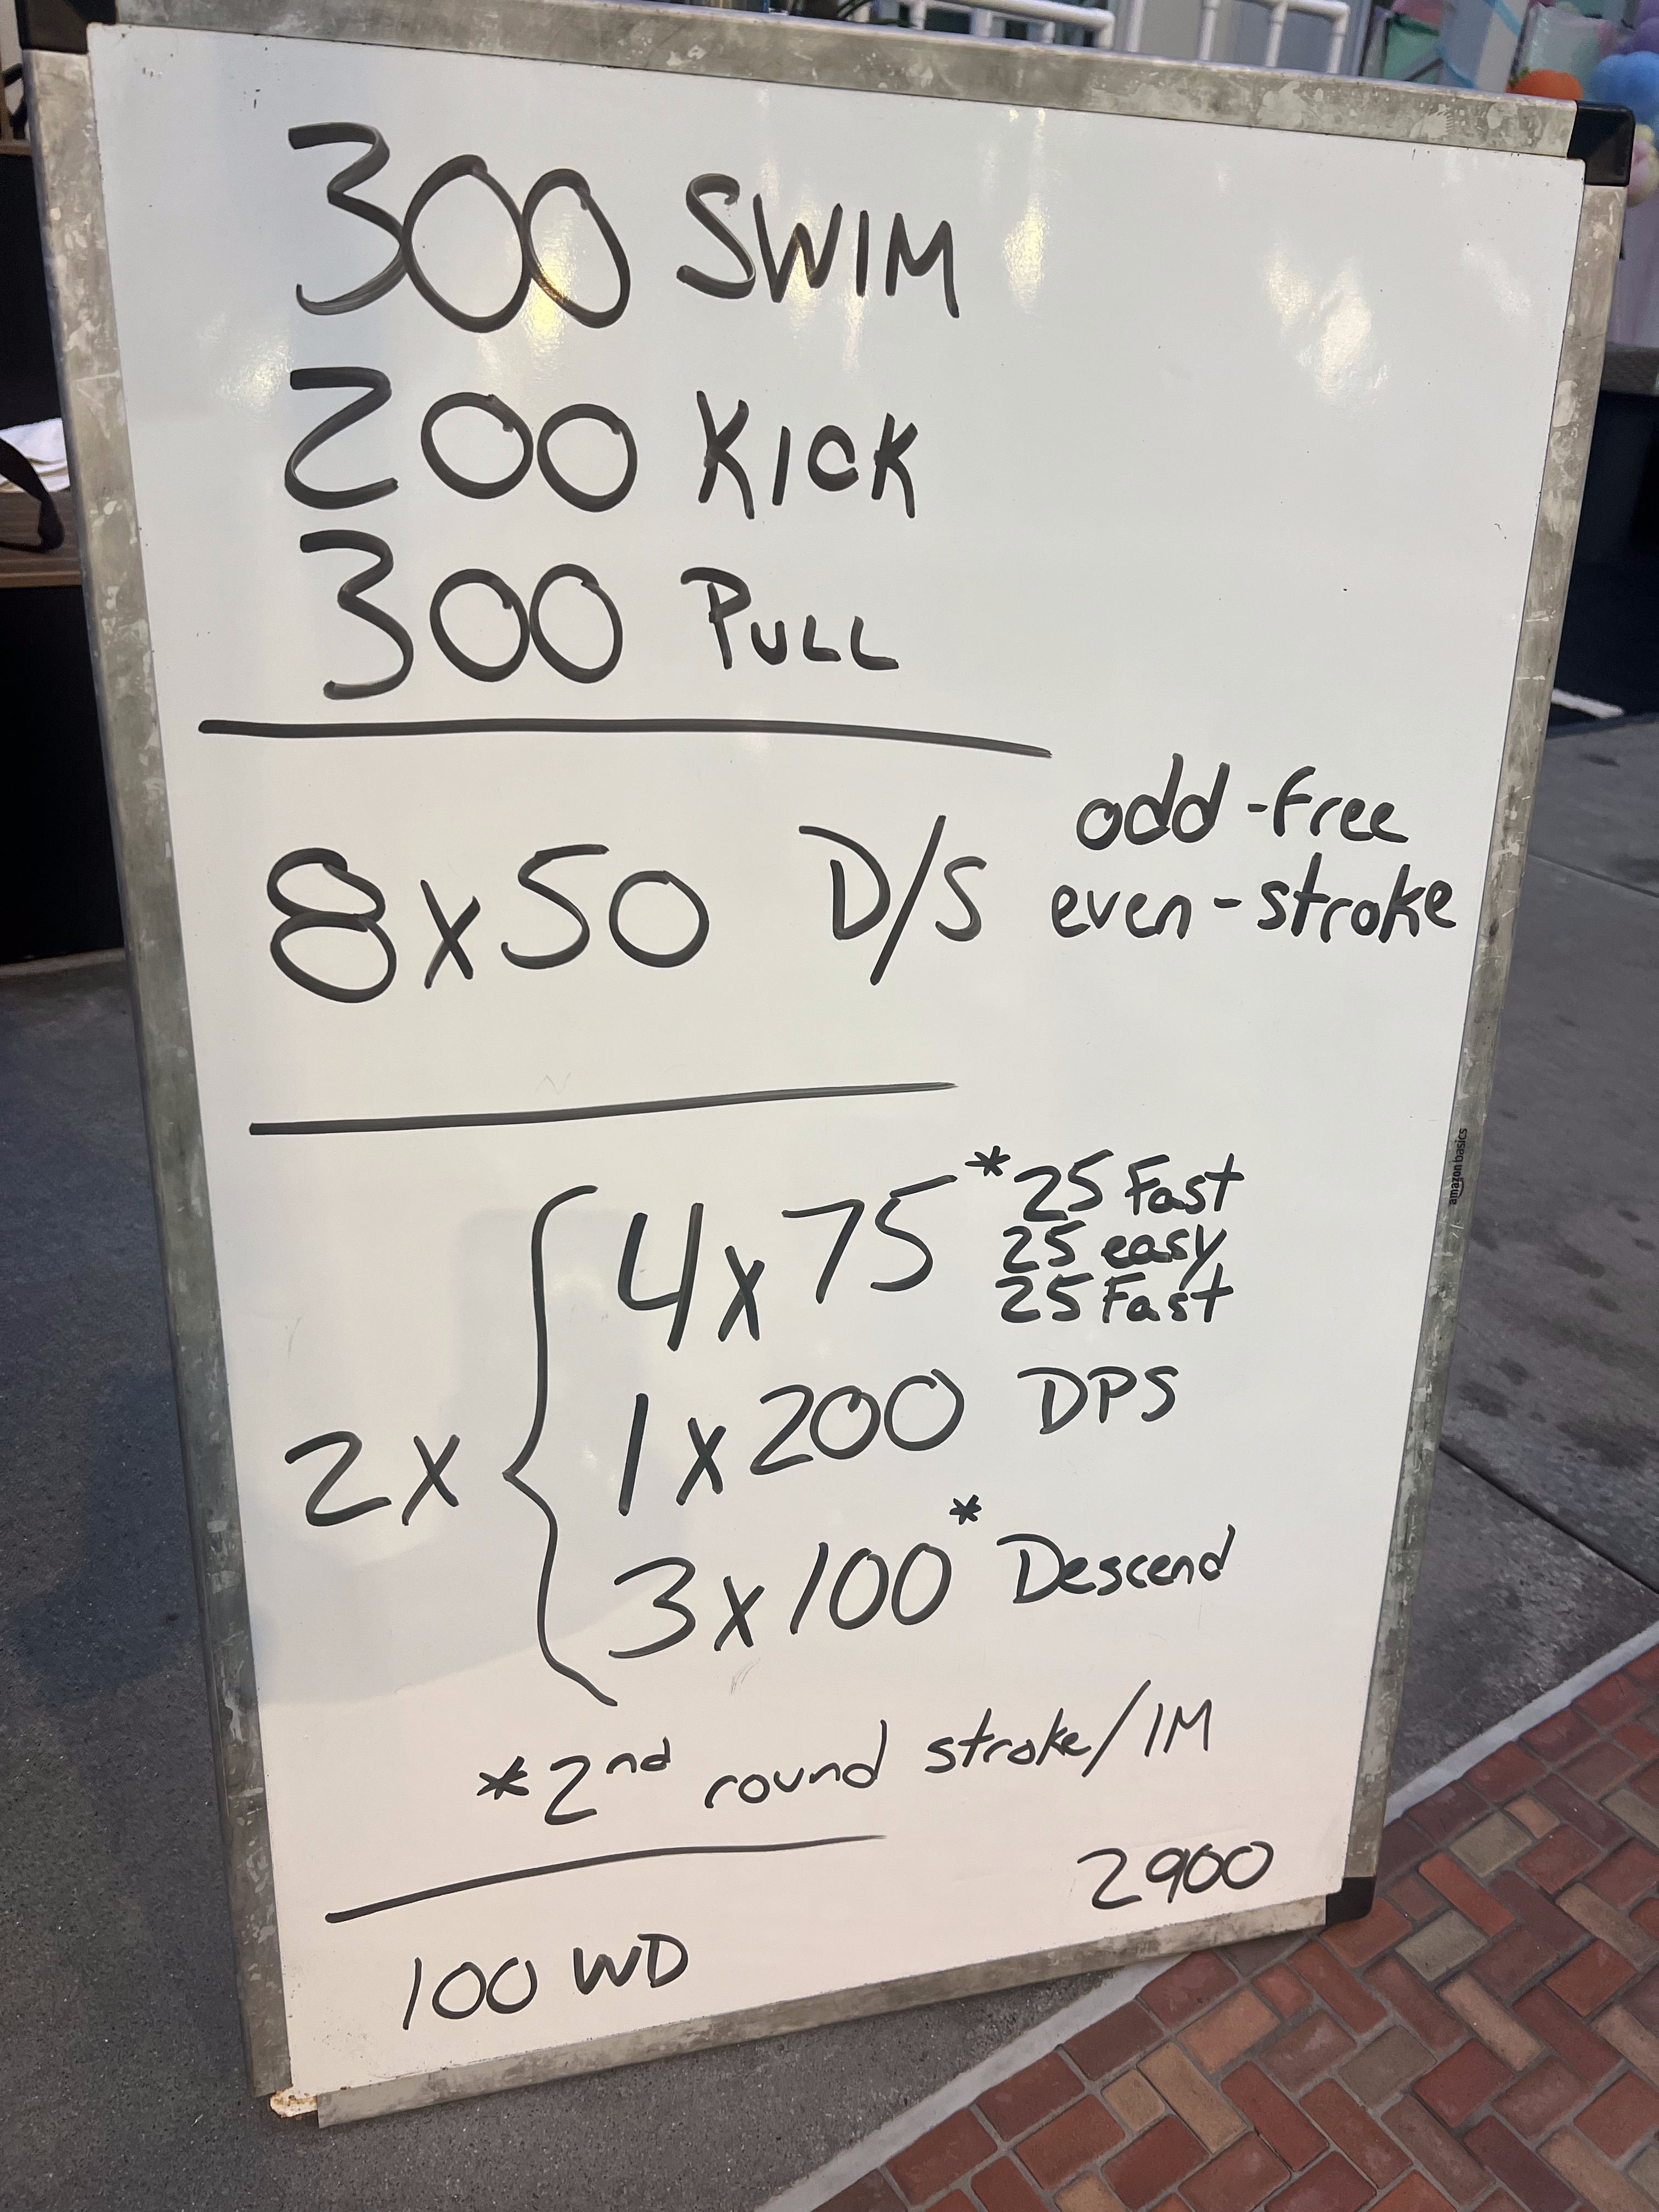 300 SWIM
200 KICK
300 PULL
8x50 D/S odd-free
even-stroke
4x75 *25 Fast
25 easy
25 Fast
2x
1x200 DPS
3x100* Descend
*2nd round stroke/IM
2900
100 WD
amazon basics